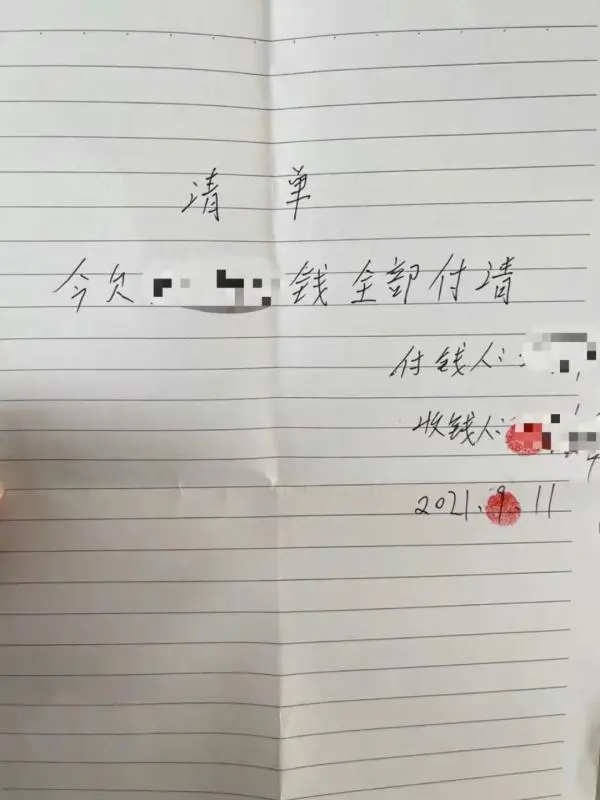 清单
今欠钱全部付清
付钱人:
收钱人:
2021.9.11